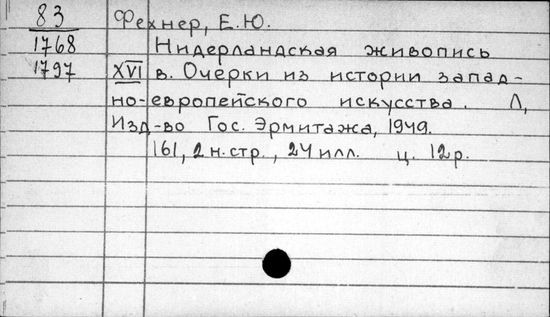 83 Фехнер, Е.Ю.
1768 Нидерландская живопись
1797 XVI в. Очерки из истории запад-
но-европейского искусства. Л,
Изд-во Гос. Эрмитажа, 1949.
161, 2 н.стр., 24 илл. ц. 12р.